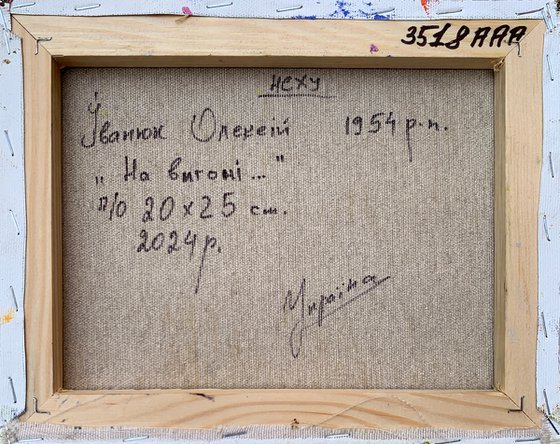 3518AAA
НСХУ
Іванюк Олексій 1954 р.н.
„На вигоні..."
п/о 20x25 см.
2024р.
Україна